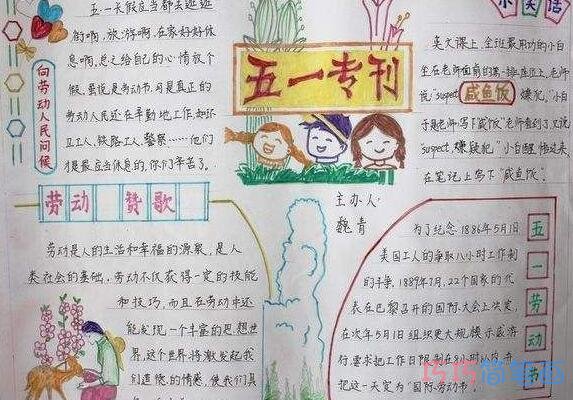 五·一长假应当都去逛逛
街啊，旅游啊，在家好好休
息啊，总之给自己的心情放个
假。虽说是劳动节，可是真正的
劳动人民还在辛勤地工作，如环
卫工人，铁路工人，警察……他们
才是最应当休息的，你们辛苦了。
向劳动人民问候
五一专刊
主办人：
魏青
小笑话
英文课上，全班最用功的小白
坐在老师面前的第一排座位上，老师
说"suspect 嫌犯"，"小白
咸鱼饭
于是老师写下"咸鱼饭"老师看到了，又说
"suspect，嫌疑犯"小白醒悟过来，
在笔记上写下"咸鱼饭"。
劳动赞歌
劳动是人的生活和幸福的源泉，是人
类社会的基础，劳动不仅获得一定的技能
和技巧，而且在劳动中还
能发现一个丰富的思想世
界，这个世界将激发起我
们道德的情感，使我们具
五一劳动节
为了纪念1886年5月1日
美国工人的争取八小时工作制
的斗争，1889年7月，22个国家的代
表在巴黎召开的国际大会上决定，
在次年5月1日组织更大规模示威游
行，要求把工作日限制在8小时以内，并
把这一天定为"国际劳动节"。